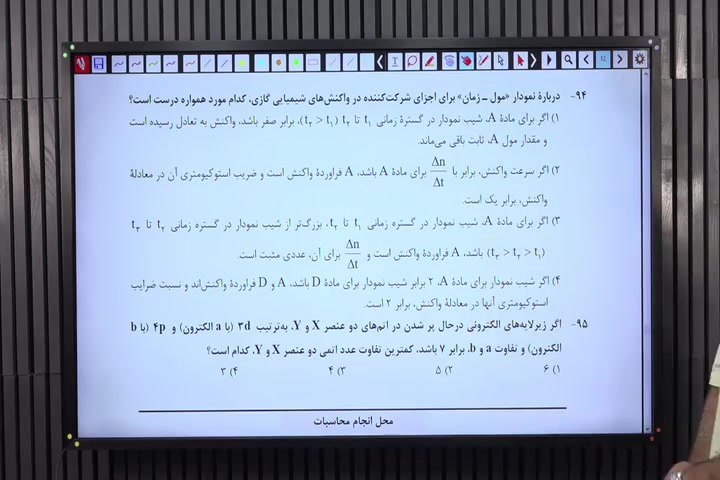 ۹۴- دربارهٔ نمودار «مول ــ زمان» برای اجزای شرکت‌کننده در واکنش‌های شیمیایی گازی، کدام مورد همواره درست است؟
۱) اگر برای مادهٔ A، شیب نمودار در گسترهٔ زمانی t₁ تا t₂ (t₂ > t₁)، برابر صفر باشد، واکنش به تعادل رسیده است
و مقدار مول A، ثابت باقی می‌ماند.
۲) اگر سرعت واکنش، برابر با Δn/Δt برای مادهٔ A باشد، A فراوردهٔ واکنش است و ضریب استوکیومتری آن در معادلهٔ
واکنش، برابر یک است.
۳) اگر برای مادهٔ A، شیب نمودار در گستره زمانی t₁ تا t₂، بزرگ‌تر از شیب نمودار در گستره زمانی t₂ تا t₃
(t₃ > t₂ > t₁) باشد، A فراوردهٔ واکنش است و Δn/Δt برای آن، عددی مثبت است.
۴) اگر شیب نمودار برای مادهٔ A، ۲ برابر شیب نمودار برای مادهٔ D باشد، A و D فراوردهٔ واکنش‌اند و نسبت ضرایب
استوکیومتری آنها در معادلهٔ واکنش، برابر ۲ است.
۹۵- اگر زیرلایه‌های الکترونی درحال پر شدن در اتم‌های دو عنصر X و Y، به‌ترتیب ۳d (با a الکترون) و ۴p (با b
الکترون) و تفاوت a و b، برابر ۷ باشد، کمترین تفاوت عدد اتمی دو عنصر X و Y، کدام است؟
۱) ۶ ۲) ۵ ۳) ۴ ۴) ۳
محل انجام محاسبات